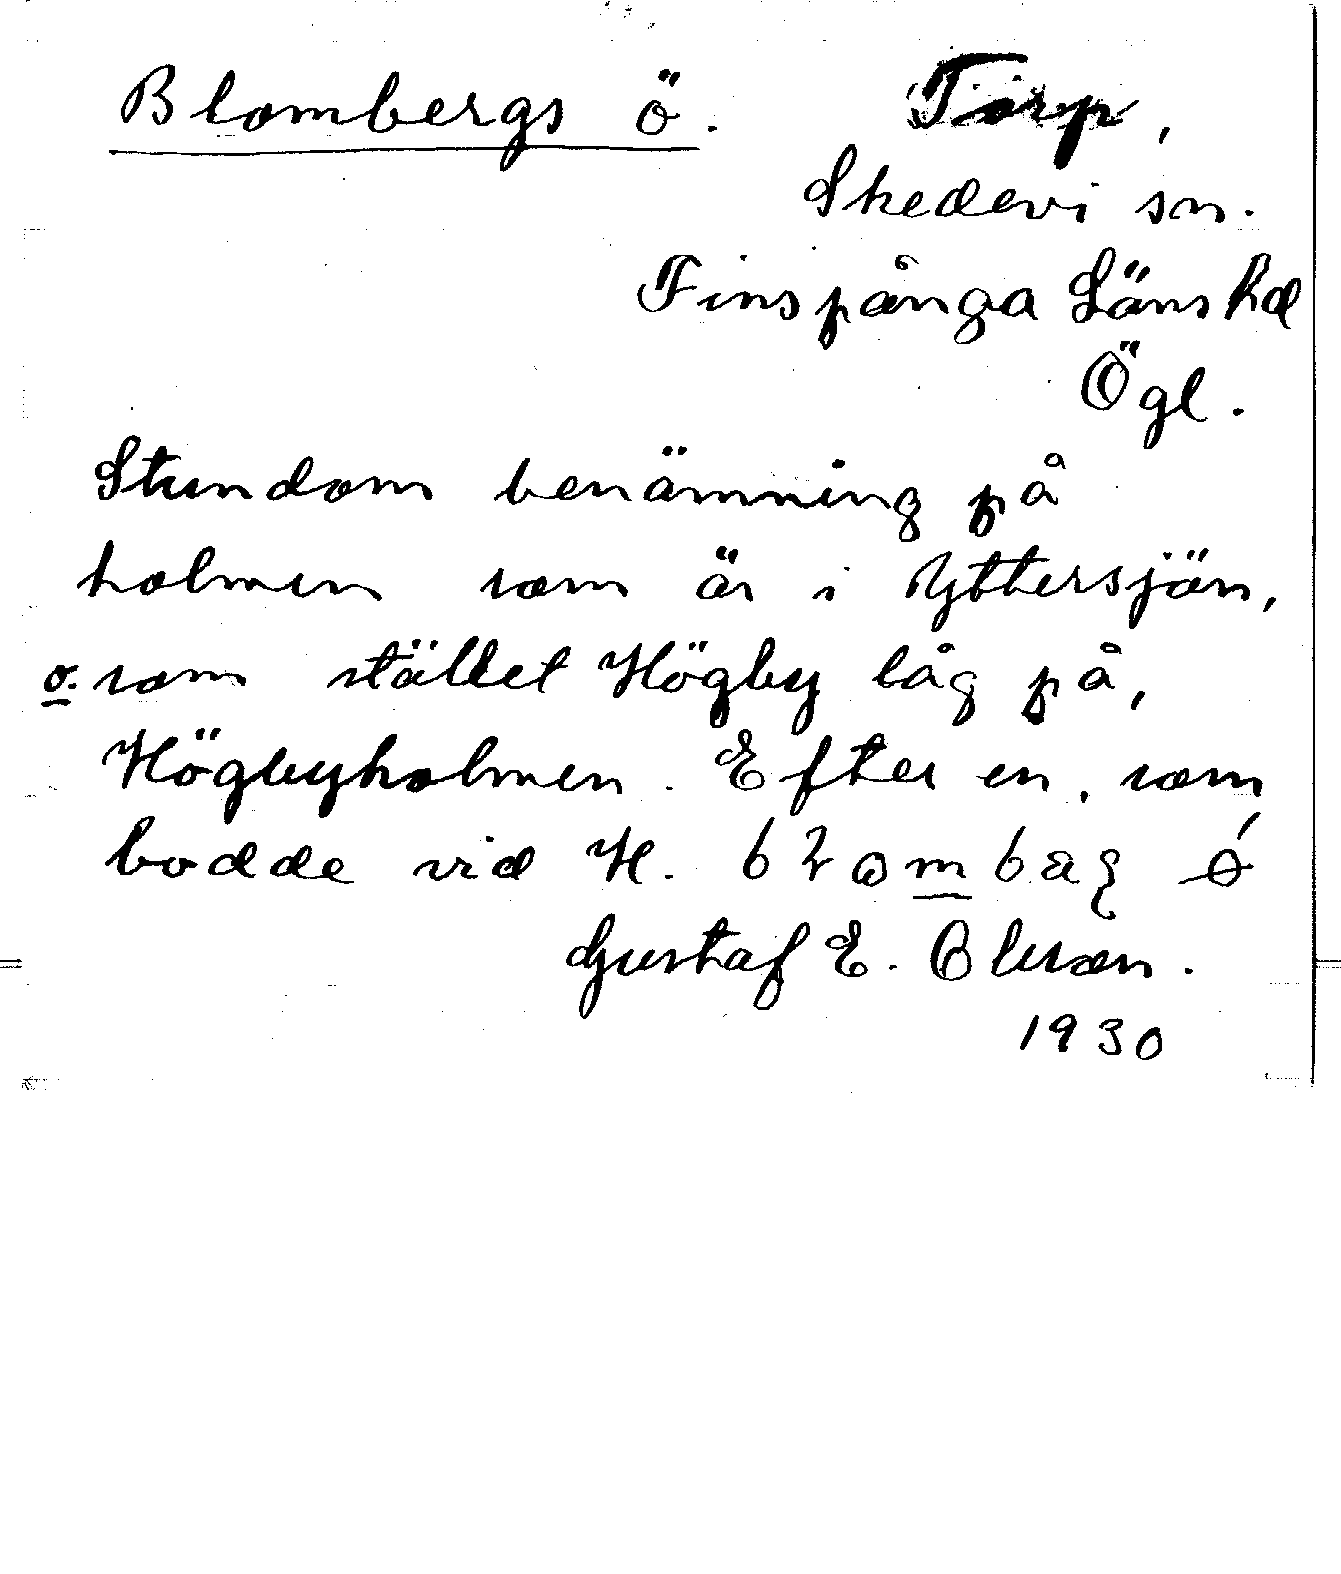 Blombergs ö. Torp,
Skedevi sn.
Finspånga Läns hd
Ögl.
Stundom benämning på
holmen som är i Yttersjön,
o. som stället Högby låg på,
Högbyholmen. Efter en, som
bodde vid H.
Gustaf E. Olsson.
1930